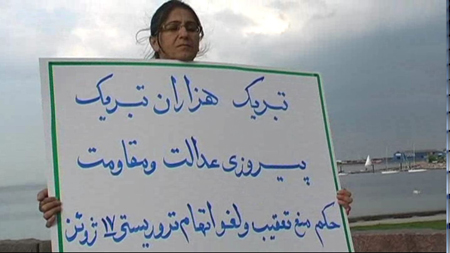 تبریک هزاران تبریک
پیروزی عدالت و مقاومت
حکم منع تعقیب و لغو اتهام تروریستی ۱۷ ژوئن